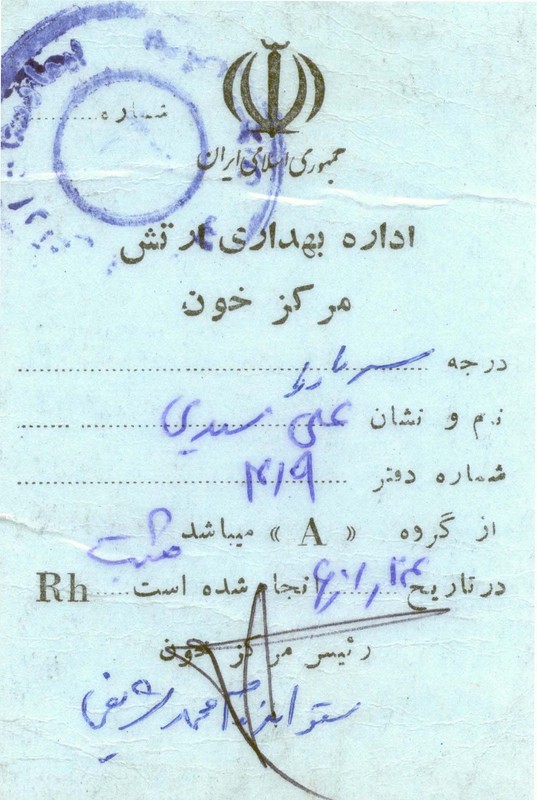 شماره
جمهوری اسلامی ایران
اداره بهداری ارتش
مرکز خون
درجه سرباز
نام و نشان علی سیدی
شماره دفتر ۳۱۹
از گروه « A » میباشد
مثبت
در تاریخ انجام شده است Rh
رئیس مرکز خون
محمد شریفی